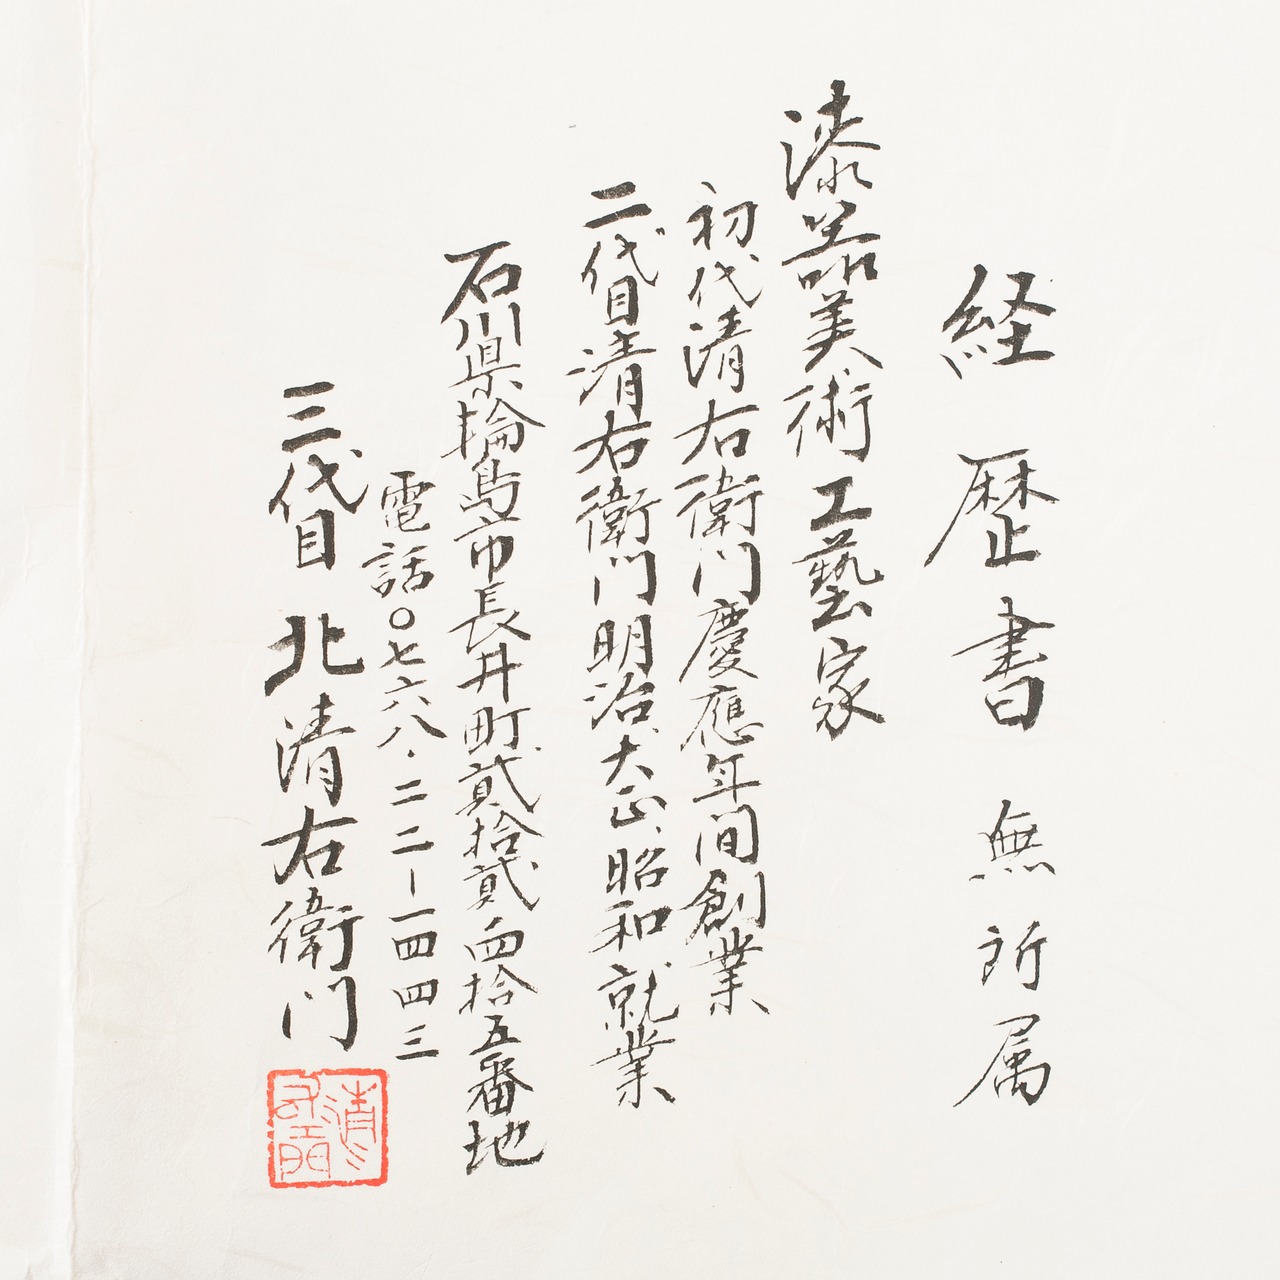 経歴書 無所属
漆器美術工藝家
初代清右衛門慶應年間創業
二代目清右衛門明治、大正、昭和就業
石川県輪島市長井町貳拾貳四拾五番地
電話〇七六八・二二ー一四四三
三代目 北清右衛門
清右衛門